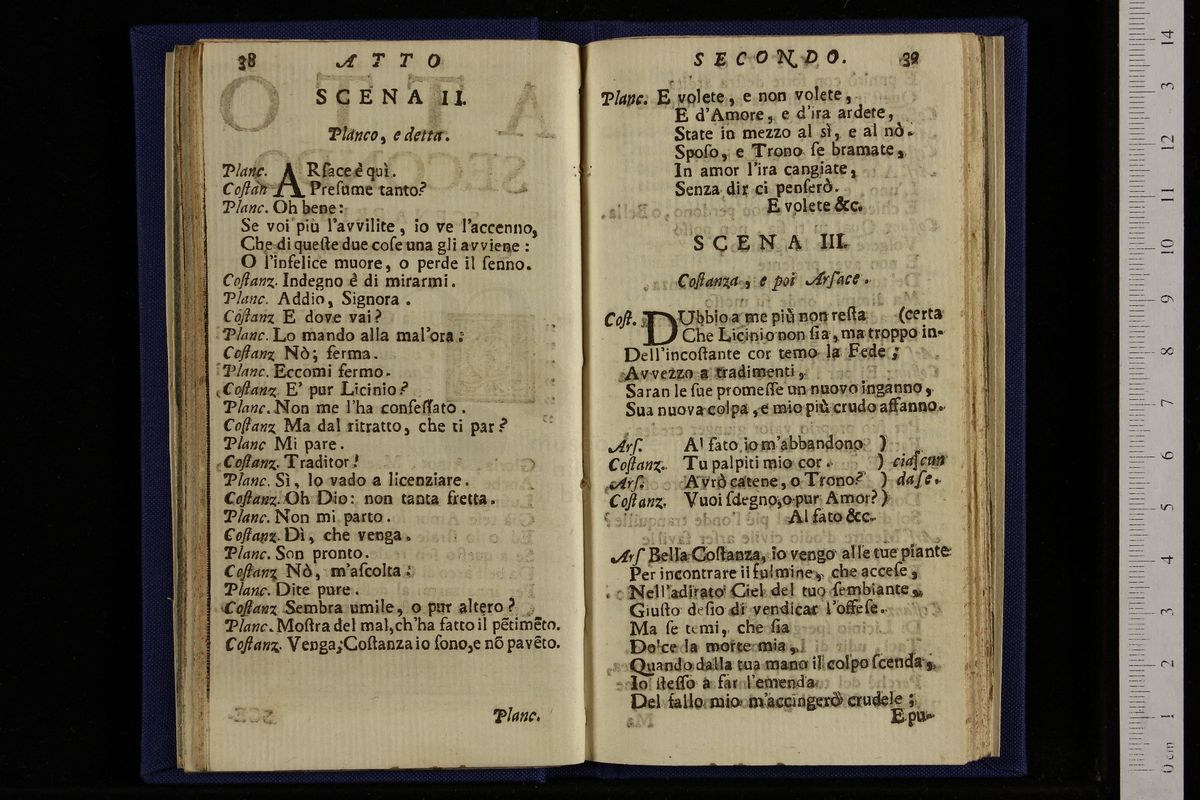 38 ATTO
SCENA II.
Planco, e detta.
Planc. ARſace è quì.
Coſtan Preſume tanto?
Planc. Oh bene:
Se voi più l'avvilite, io ve l'accenno,
Che di queſte due coſe una gli avviene:
O l'infelice muore, o perde il ſenno.
Coſtanz. Indegno è di mirarmi.
Planc. Addio, Signora.
Coſtanz E dove vai?
Planc. Lo mando alla mal'ora:
Coſtanz Nò; ferma.
Planc. Eccomi fermo.
Coſtanz E' pur Licinio?
Planc. Non me l'ha confeſſato.
Coſtanz Ma dal ritratto, che ti par?
Planc Mi pare.
Coſtanz. Traditor!
Planc. Sì, lo vado a licenziare.
Coſtanz. Oh Dio: non tanta fretta.
Planc. Non mi parto.
Coſtanz. Dì, che venga.
Planc. Son pronto.
Coſtanz Nò, m'aſcolta:
Planc. Dite pure.
Coſtanz Sembra umile, o pur altero?
Planc. Moſtra del mal, ch'ha fatto il pẽtimẽto.
Coſtanz. Venga; Coſtanza io ſono, e nõ pavẽto.
Planc.
SECONDO. 39
Planc. E volete, e non volete,
E d'Amore, e d'ira ardete,
State in mezzo al sì, e al nò.
Spoſo, e Trono ſe bramate,
In amor l'ira cangiate,
Senza dir ci penſerò.
E volete &c.
SCENA III.
Coſtanza, e poi Arſace.
Coſt. DUbbio a me più non reſta (certa
Che Licinio non ſia, ma troppo in-
Dell'incoſtante cor temo la Fede;
Avvezzo a tradimenti,
Saran le ſue promeſſe un nuovo inganno,
Sua nuova colpa, e mio più crudo affanno.
Arſ. Al fato io m'abbandono )
Coſtanz. Tu palpiti mio cor. ) ciaſcun
Arſ. Avrò catene, o Trono? ) da ſe.
Coſtanz. Vuoi ſdegno, o pur Amor? )
Al fato &c.
Arſ Bella Coſtanza, io vengo alle tue piante
Per incontrare il fulmine, che acceſe,
Nell'adirato Ciel del tuo ſembiante,
Giuſto deſio di vendicar l'offeſe.
Ma ſe temi, che ſia
Dolce la morte mia,
Quando dalla tua mano il colpo ſcenda,
Io ſteſſo a far l'emenda
Del fallo mio m'accingerò crudele;
E pu-